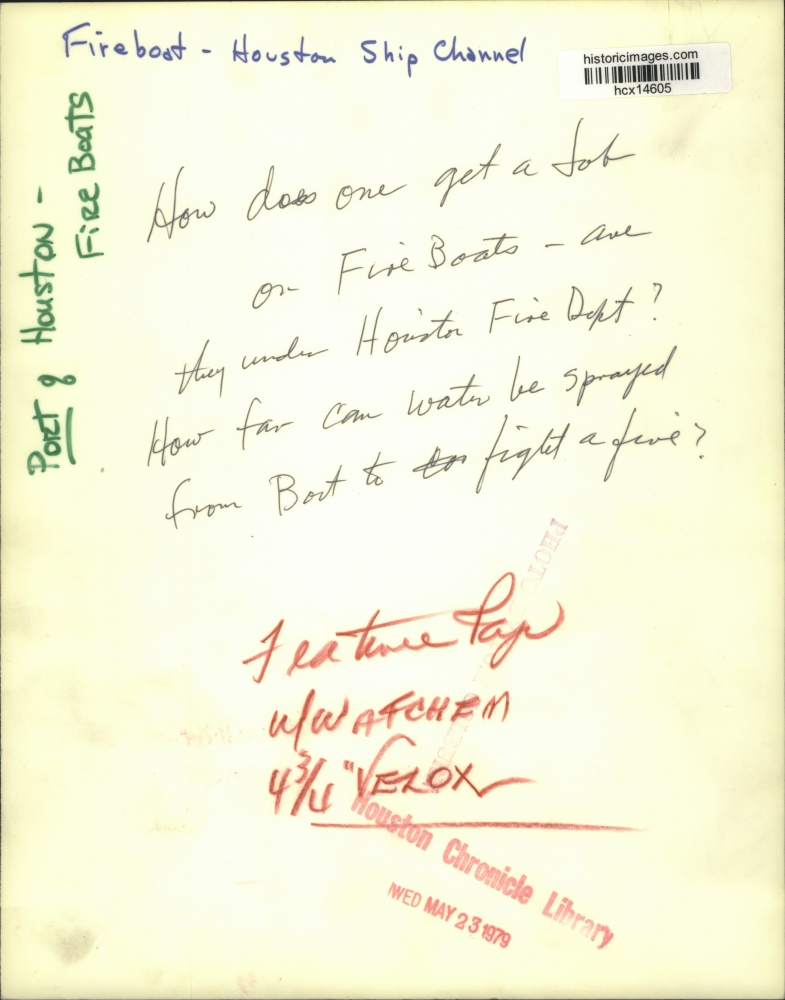 Fireboat - Houston Ship Channel
historicimages.com
hcx14605
Port of Houston -
Fire Boats
How does one get a Job
on Fire Boats - are
they under Houston Fire Dept?
How far can water be sprayed
from Boat to fight a fire?
PHOTO
Feature Page
w/WATCHEM
4 3/4" VELOX
Houston Chronicle Library
WED MAY 23 1979